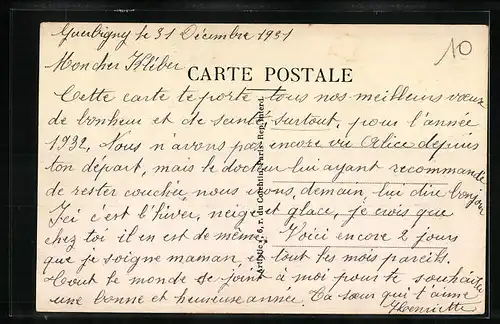 Guerbigny le 31 Décembre 1931
10
Mon cher Kléber
CARTE POSTALE
Cette carte te porte tous nos meilleurs vœux
de bonheur et de santé surtout, pour l'année
1932. Nous n'avons pas encore vu Alice depuis
ton départ, mais le docteur lui ayant recommandé
de rester couchée nous irons, demain, lui dire bonjour
Ici c'est l'hiver, neige et glace, je crois que
chez toi il en est de même. Voici encore 2 jours
que je soigne maman et tout les mois pareils.
Tout le monde se joint à moi pour te souhaiter
une bonne et heureuse année. Ta sœur qui t'aime
Henriette
6, r. du Cohentin, Paris